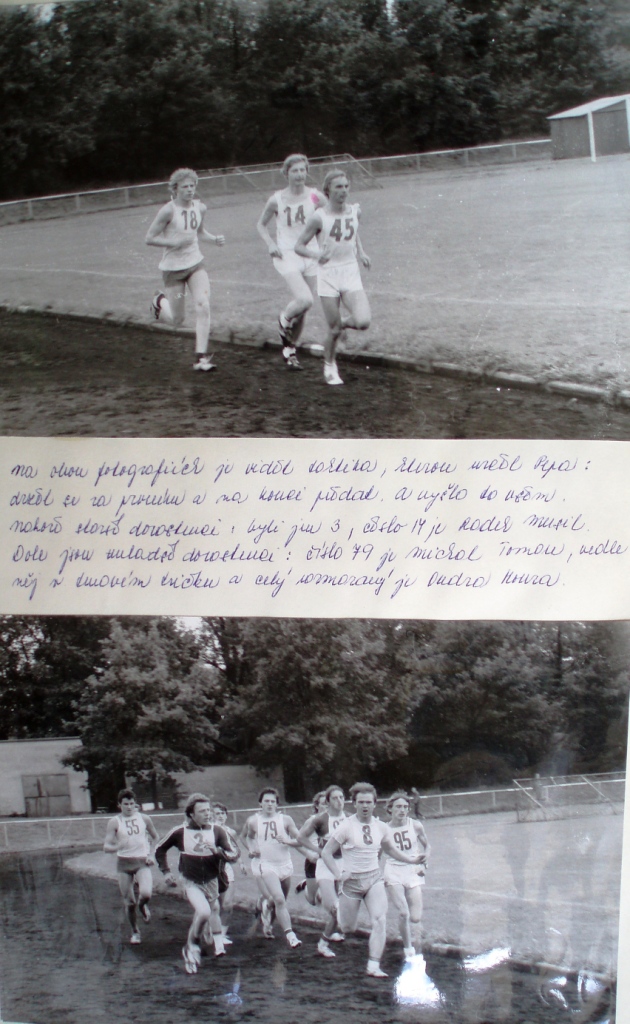 18
14
45
na obou fotografiích je vidět taktika, kterou určil Pepa:
držet se za prvním a na konci předat. a vyšlo to všem.
nahoře starší dorostenci: byli jen 3, číslo 14 je Radek Musil.
Dole jsou mladší dorostenci: číslo 79 je Michal Toman, vedle
něj v tmavém tričku a celý rozmazaný je Ondra Koura.
55
2
79
8
95